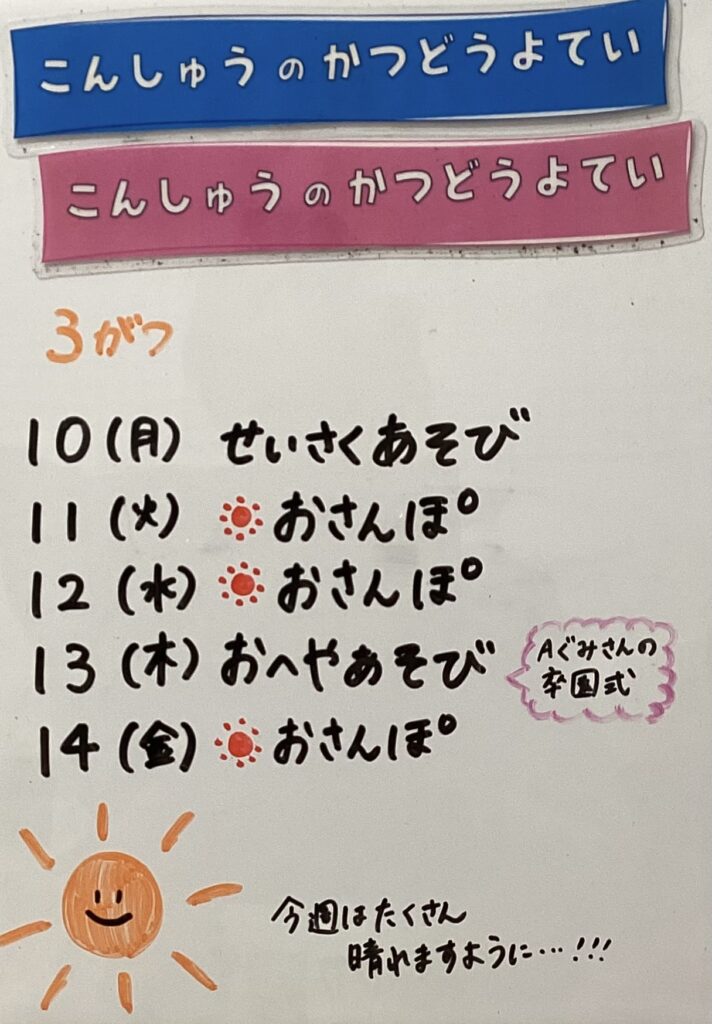 こんしゅうのかつどうよてい
こんしゅうのかつどうよてい
3がつ
10(月) せいさくあそび
11(火) おさんぽ
12(水) おさんぽ
13(木) おへやあそび
Aぐみさんの
卒園式
14(金) おさんぽ
今週はたくさん
晴れますように…!!!